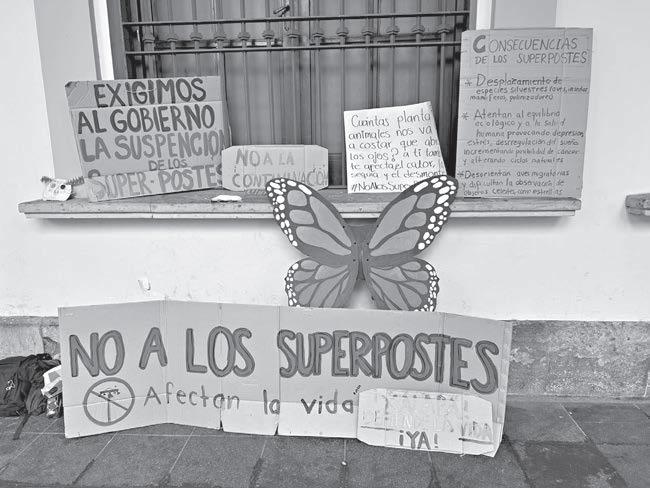 EXIGIMOS
AL GOBIERNO
LA SUSPENCIÓN
DE LOS
SUPER-POSTES
NO A LA
CONTAMINACIÓN
Cuántas plantas
animales nos va
a costar que abr
los ojos? a ti tam
te afecta el calor,
sequía y el desmont
#NoAlosSuper
CONSECUENCIAS
DE LOS SUPERPOSTES
* Desplazamiento de
especies silvestres (aves,
mamíferos, polinizadores)
* Atentan al equilibrio
ecológico y a la salud
humana provocando depresión,
estres, desregulación del sueño
incrementando posibilidad de cáncer
y alterando ciclos naturales
* Desorientan aves migratorias
y dificultan la observación de
objetos celeste, como estrellas
NO A LOS SUPERPOSTES
Afectan la vida
¡YA!